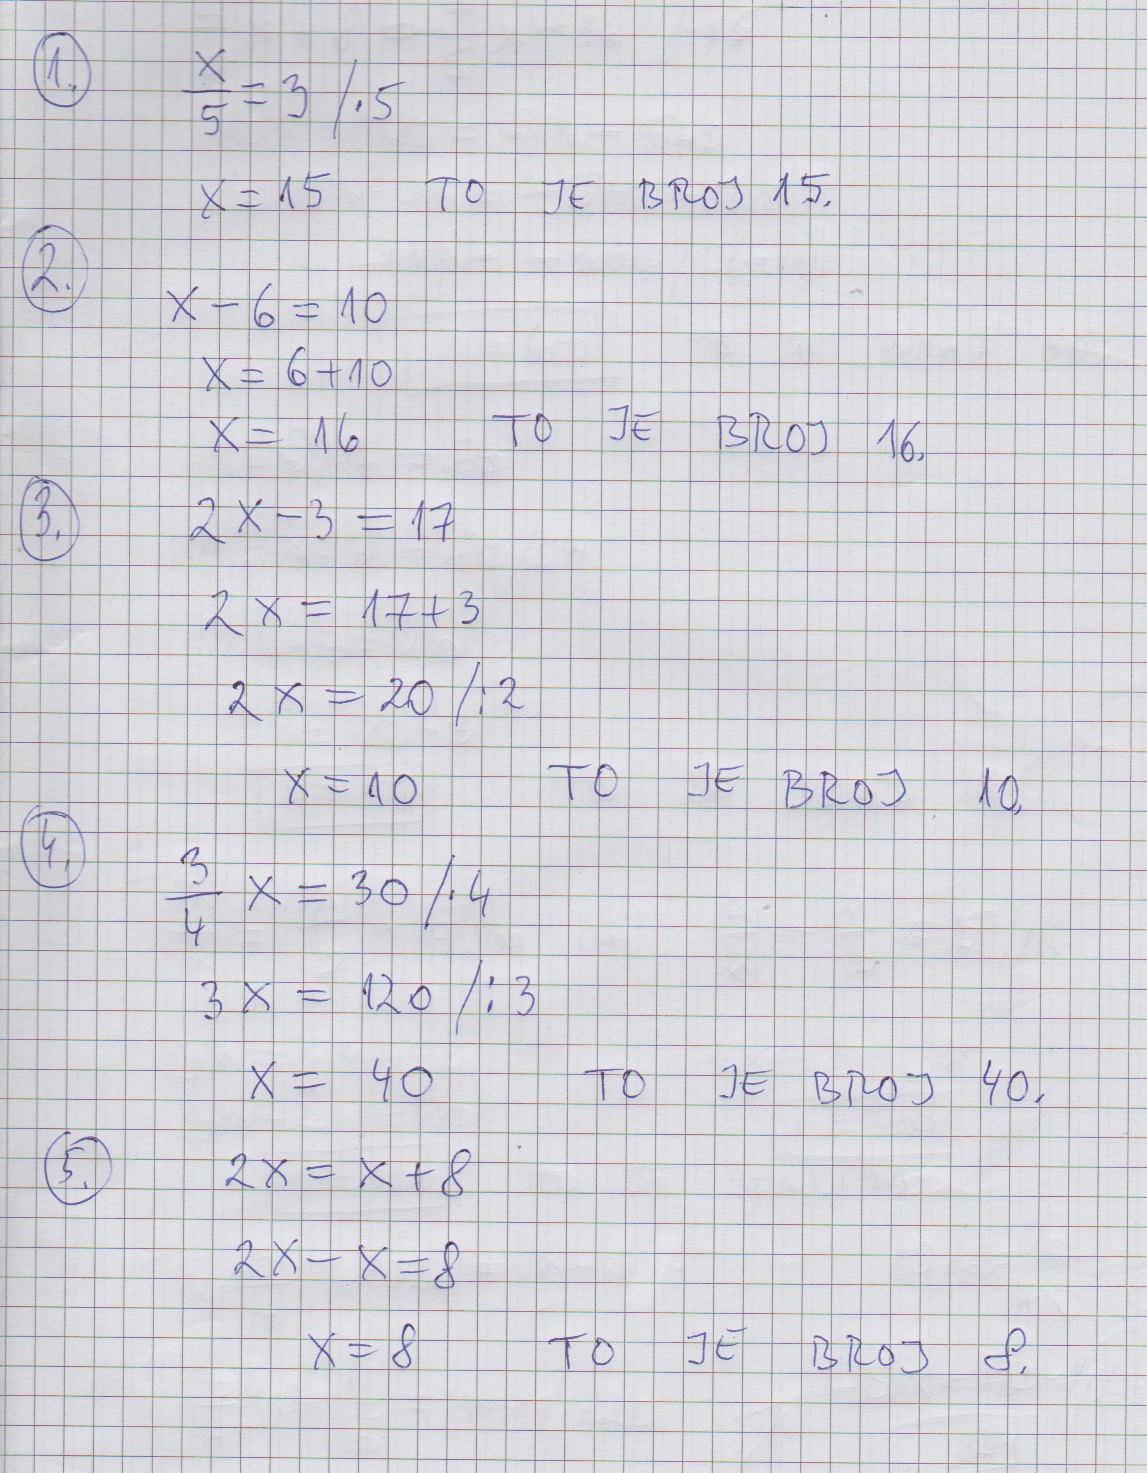 1. x/5 = 3 /·5
x = 15 TO JE BROJ 15.
2.
x - 6 = 10
x = 6+10
x = 16 TO JE BROJ 16.
3. 2x - 3 = 17
2x = 17+3
2x = 20 /:2
x = 10 TO JE BROJ 10.
4. 3/4 x = 30 /·4
3x = 120 /:3
x = 40 TO JE BROJ 40.
5. 2x = x + 8
2x - x = 8
x = 8 TO JE BROJ 8.